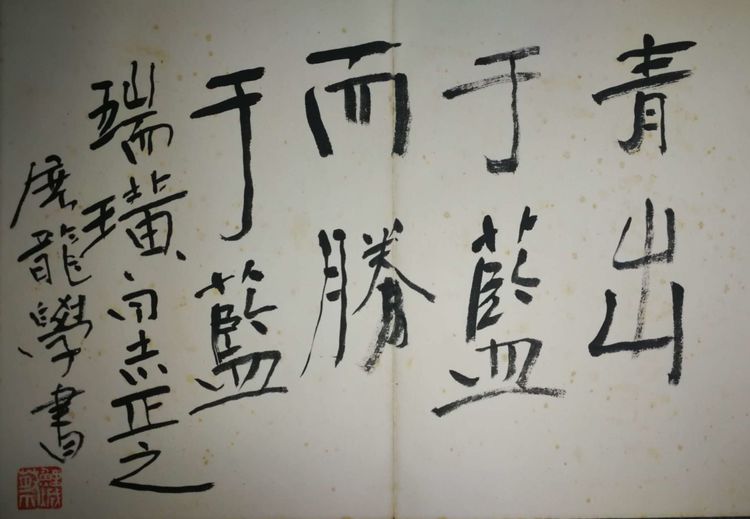 青出
于藍
而勝
于藍
瑞璜同志正之
展龍學書